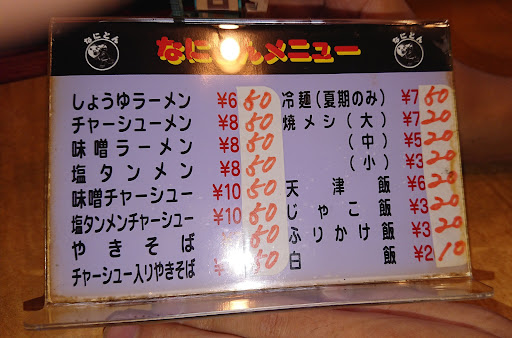 なにとん
なにとん
なに んメニュー
しょうゆラーメン ¥650
チャーシューメン ¥850
味噌ラーメン ¥850
塩タンメン ¥850
味噌チャーシュー ¥1050
塩タンメンチャーシュー ¥1050
やきそば 50
チャーシュー入りやきそば 50
冷麺(夏期のみ) ¥750
焼メシ(大) ¥720
(中) ¥520
(小) ¥320
天津飯 ¥620
じゃこ飯 ¥320
ふりかけ飯 ¥320
白飯 ¥210